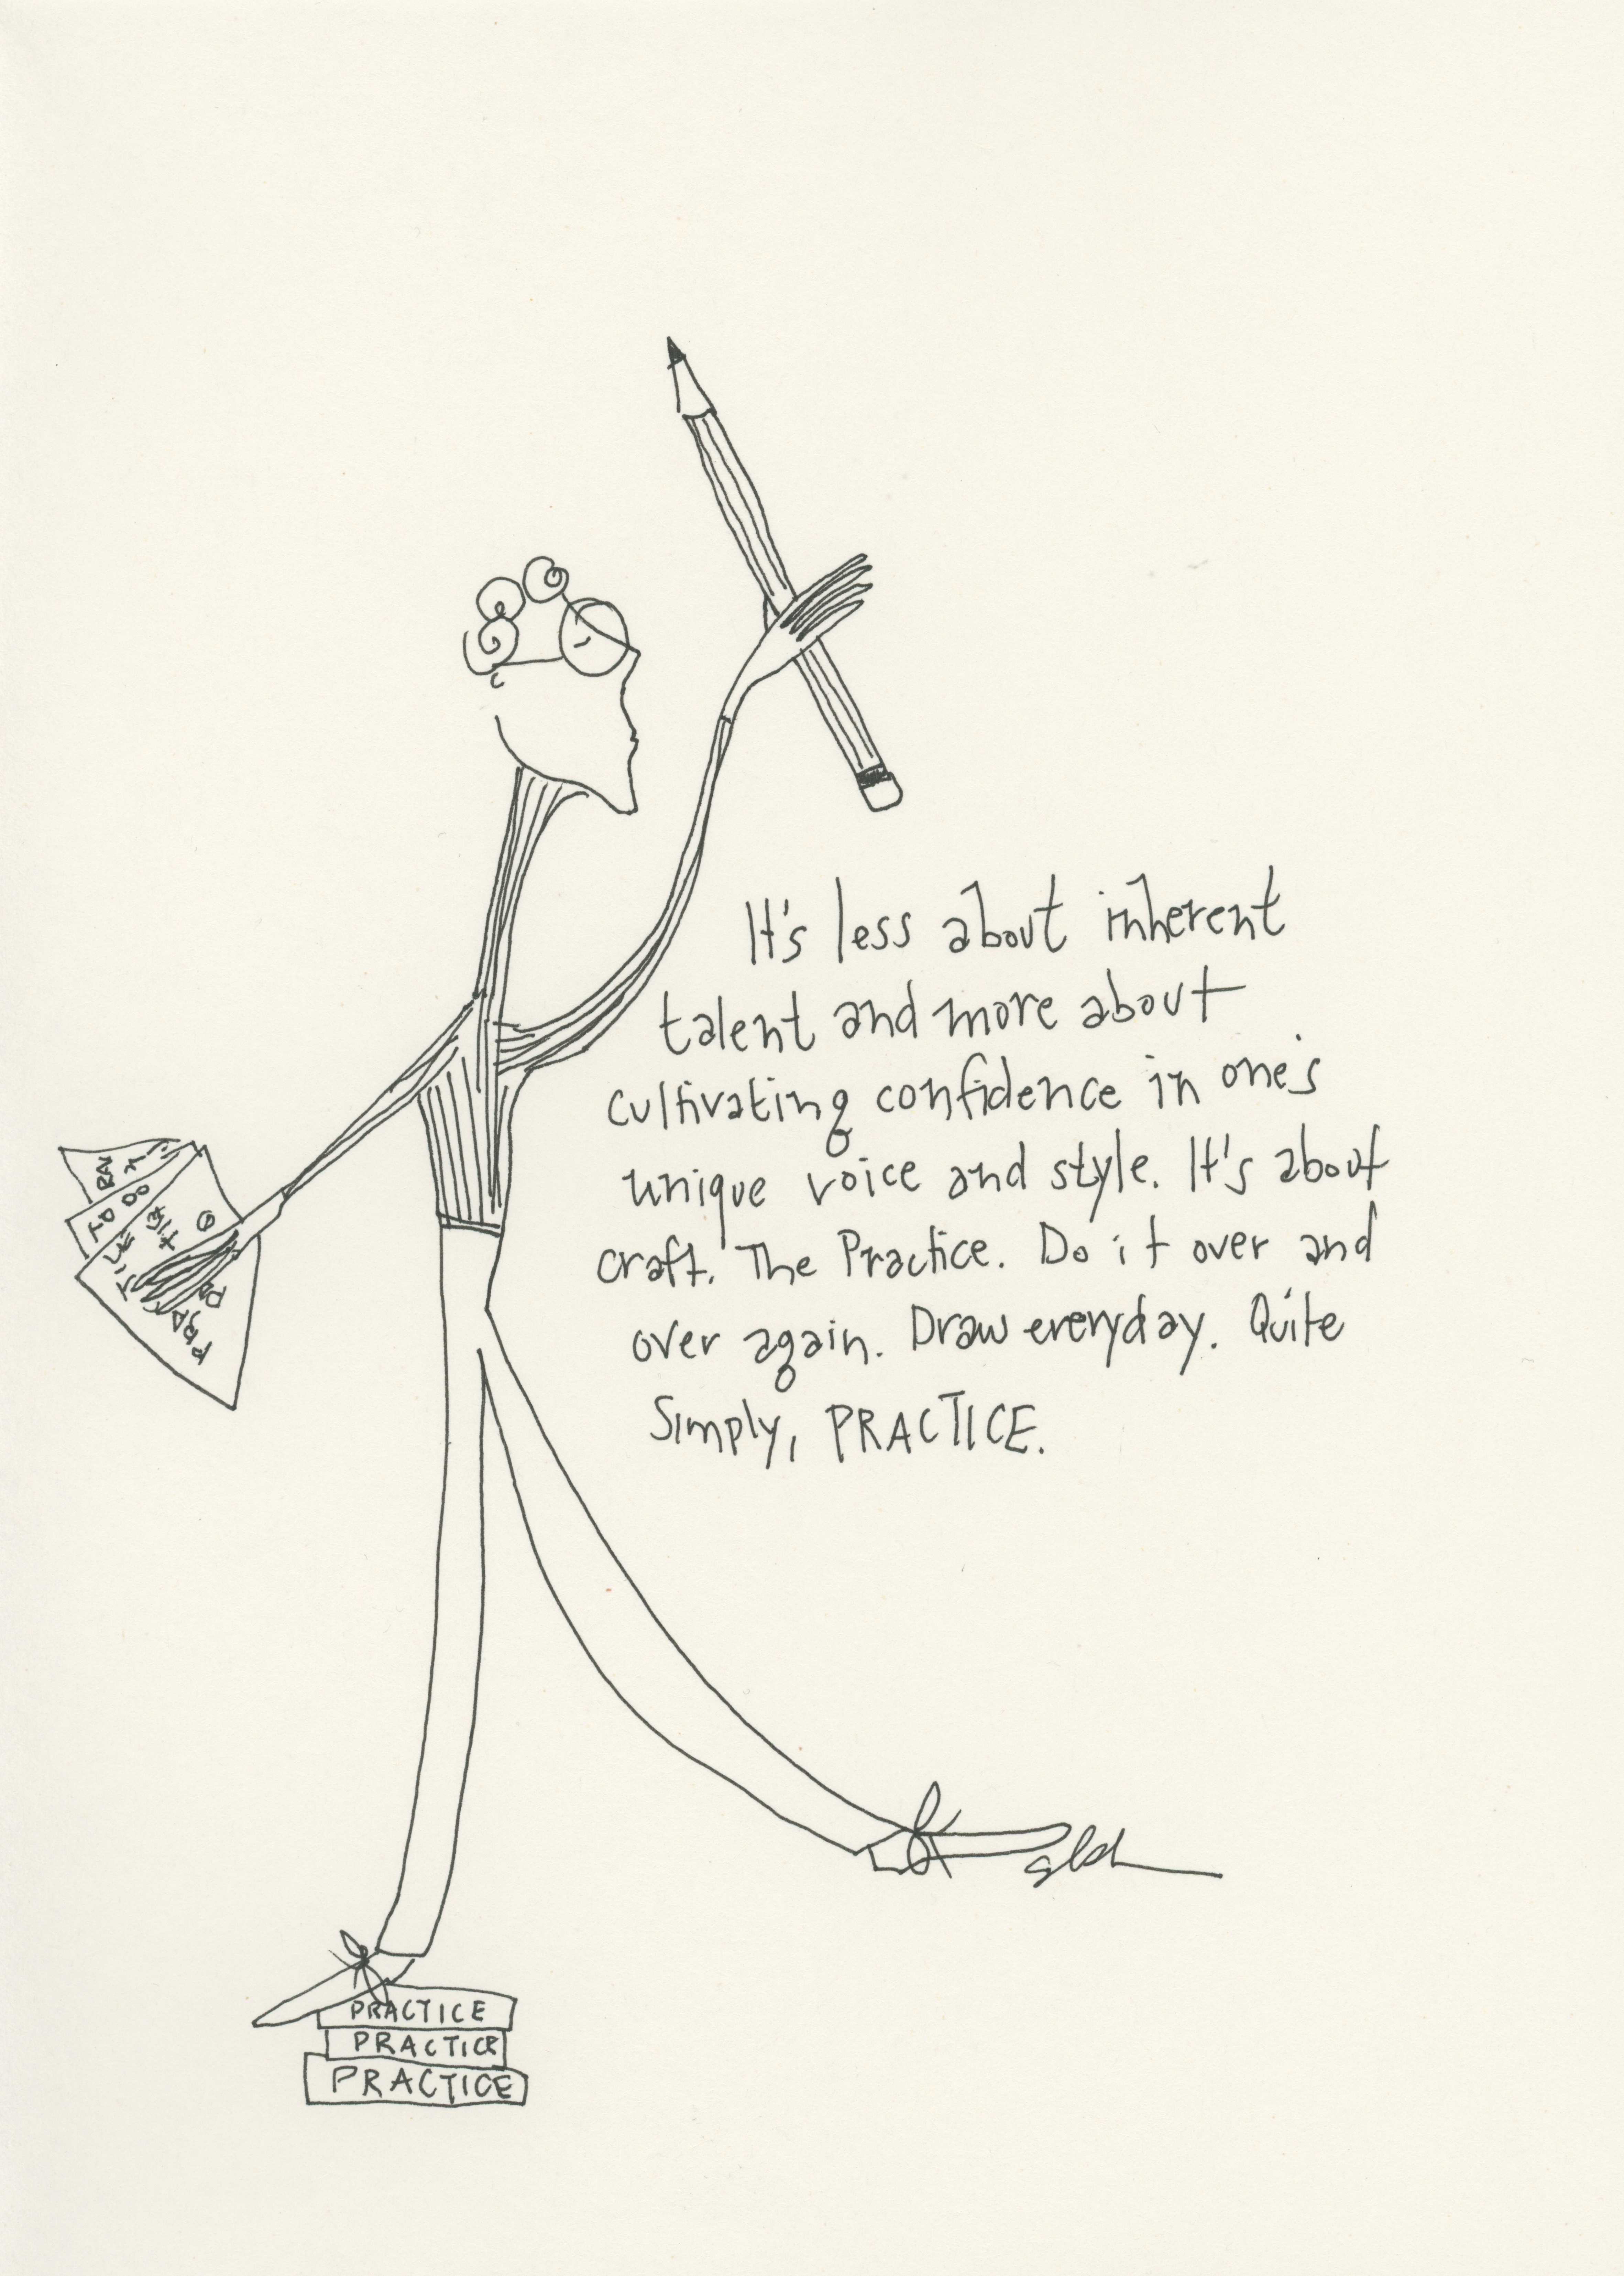 It's less about inherent
talent and more about
cultivating confidence in one's
unique voice and style. It's about
craft. The Practice. Do it over and
over again. Draw everyday. Quite
Simply, PRACTICE.
TO DO
PRACTICE
PRACTICE
PRACTICE